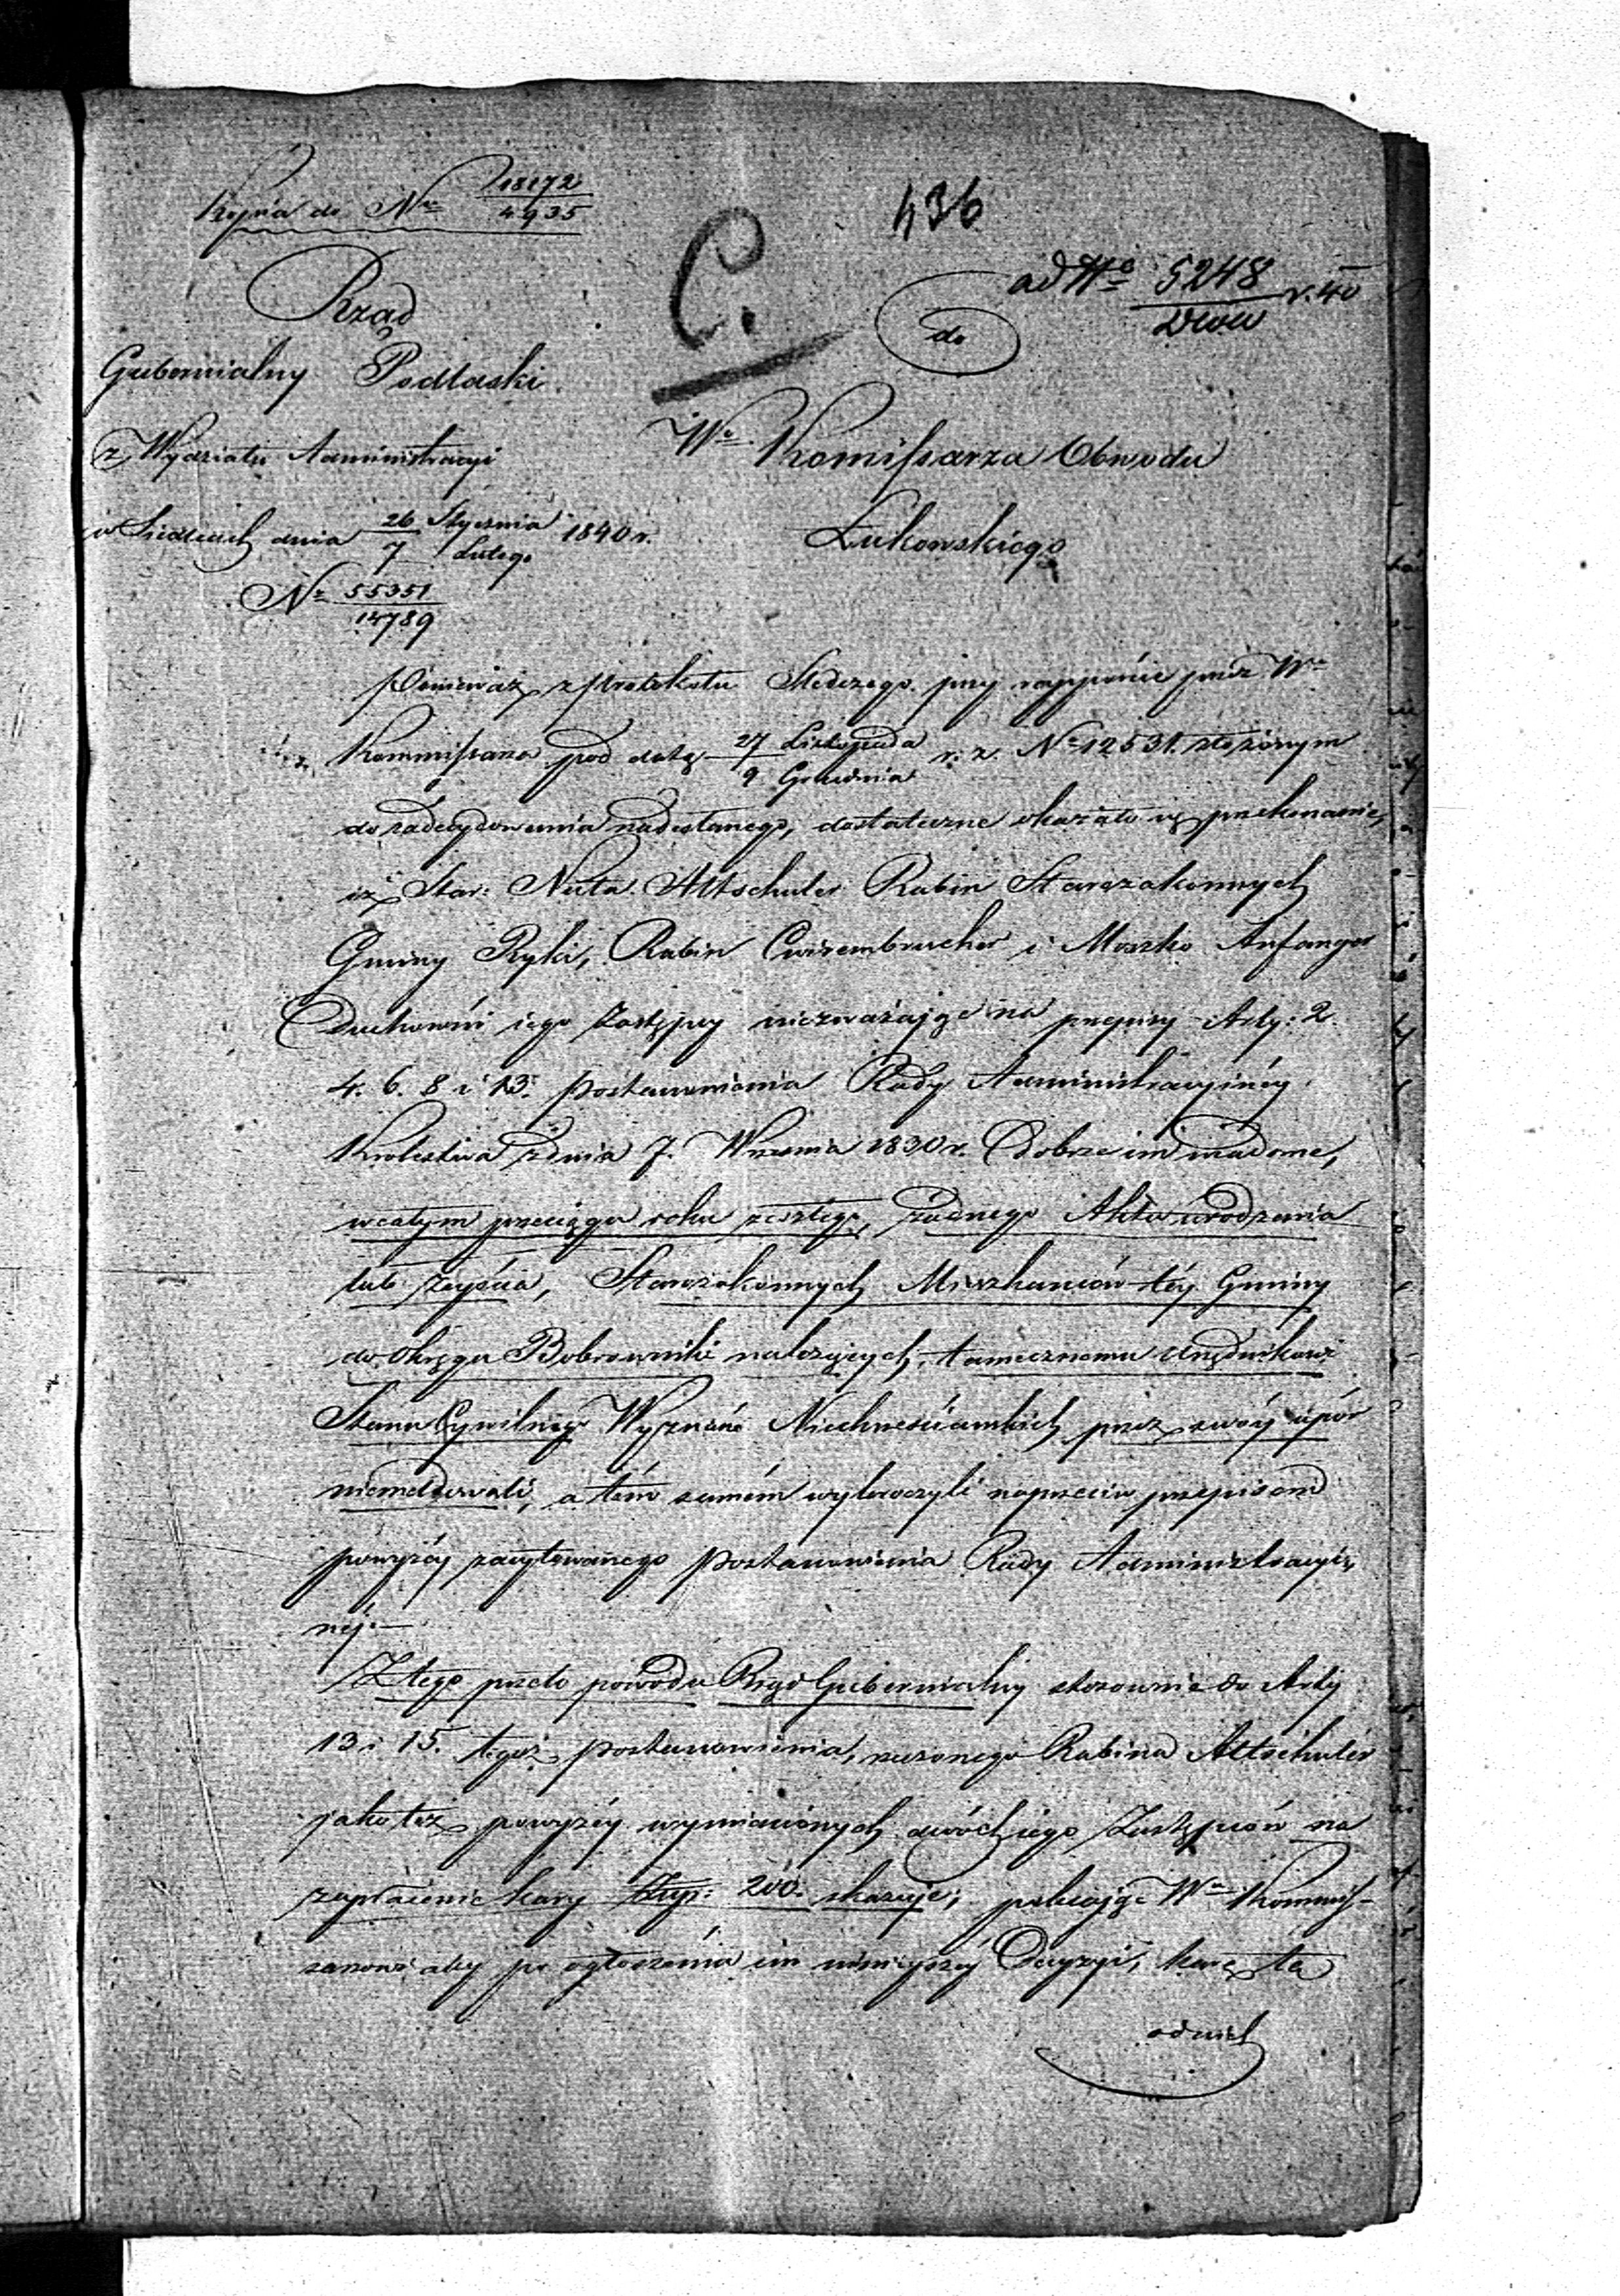 Kopia do Nro 18172/4935
436
C.
ad No 5248 r. 40
do
Rząd
Gubernialny Podlaski.
z Wydziału Administracyi
w Siedlcach dnia 26 Stycznia / 7 Lutego 1840 r.
No 55351/14789
Wo Kommissarza Obwodu
Łukowskiego
Ponieważ z protokułu Śledczego przy rapporcie przez Wo
Kommissarza pod datą 27 Listopada / 9 Grudnia r: z. No 12531. złożonym
do zadecydowania nadesłanego, dostateczne okazało się przekonanie,
iż Star: Nuta Altschuler Rabin Starozakonnych
Gminy Ryki, Rabin Cwirembrucher i Moszko Anfanger
Duchowni iego Zastępcy niezważając na przepisy Arty: 2.
4. 6. 8 i 13. postanowienia Rady Administracyinéy
Krolestwa z dnia 7. Września 1830 r. Dobrze im wiadome,
w całym przeciągu roku zeszłego, żadnego Aktu urodzenia
lub zeyścia, Starozakonnych Mieszkańców téy Gminy
do Okręgu Bobrowniki należących, tamecznemu Urzędnikowi
Stanu Cywilnego Wyznań Niechrześciańskich przez swóy upór
niemeldowali, a tém samém wykroczyli naprzeciw przepisom
powyżéy zacytowanego postanowienia Rady Administracyi-
néj.—
Z tego przeto powodu Rząd Gubernialny stosownie do Arty
13 i 15. tegoż postanowienia, rzeczonego Rabina Altschuler
jako też powyżéy wymienionych dwóch iego Zastępców na
zapłacenie kary Złp: 200. skazuje, polecając Wo Kommis-
sarzowi aby po ogłoszeniu im ninieyszéy Decyzyi, karę tę